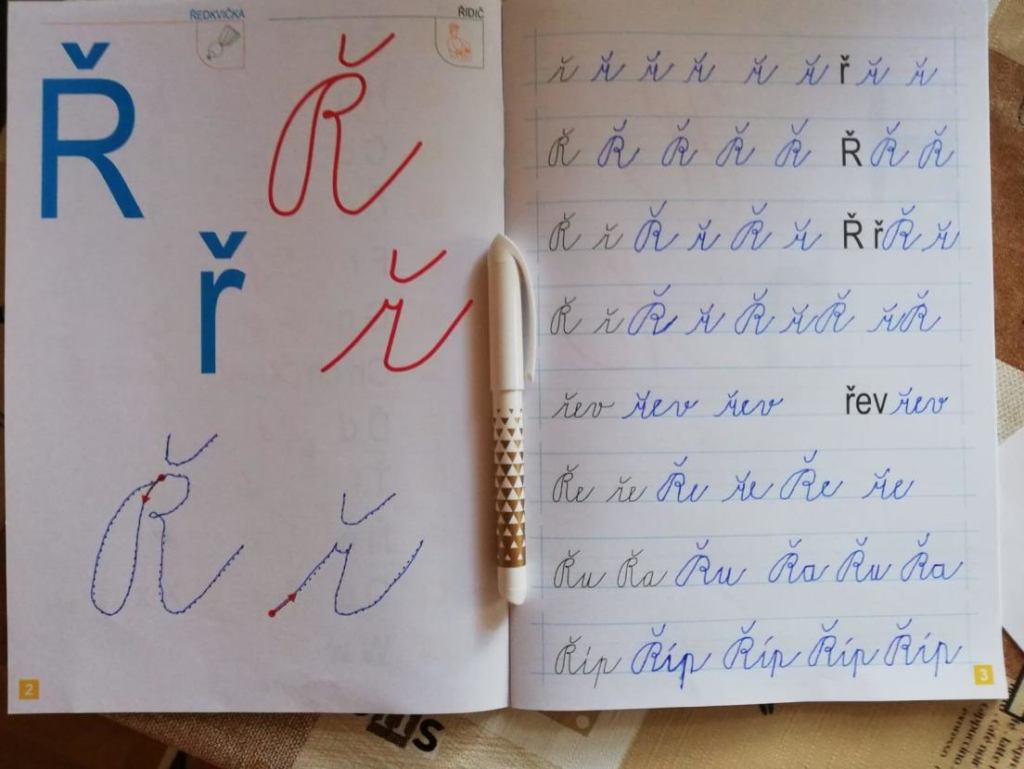 ŘEDKVIČKA
ŘIDIČ
Ř Ř
ř ř
Ř ř
2
ř ř ř ř ř ř ř ř ř
Ř Ř Ř Ř Ř Ř Ř Ř
Ř ř Ř ř Ř ř Ř ř Ř ř
Ř ř Ř ř Ř ř Ř ř Ř
řev řev řev řev řev
Ře ře Ře ře Ře ře
Řu Řa Řu Řa Řu Řa
Říp Říp Říp Říp Říp
3